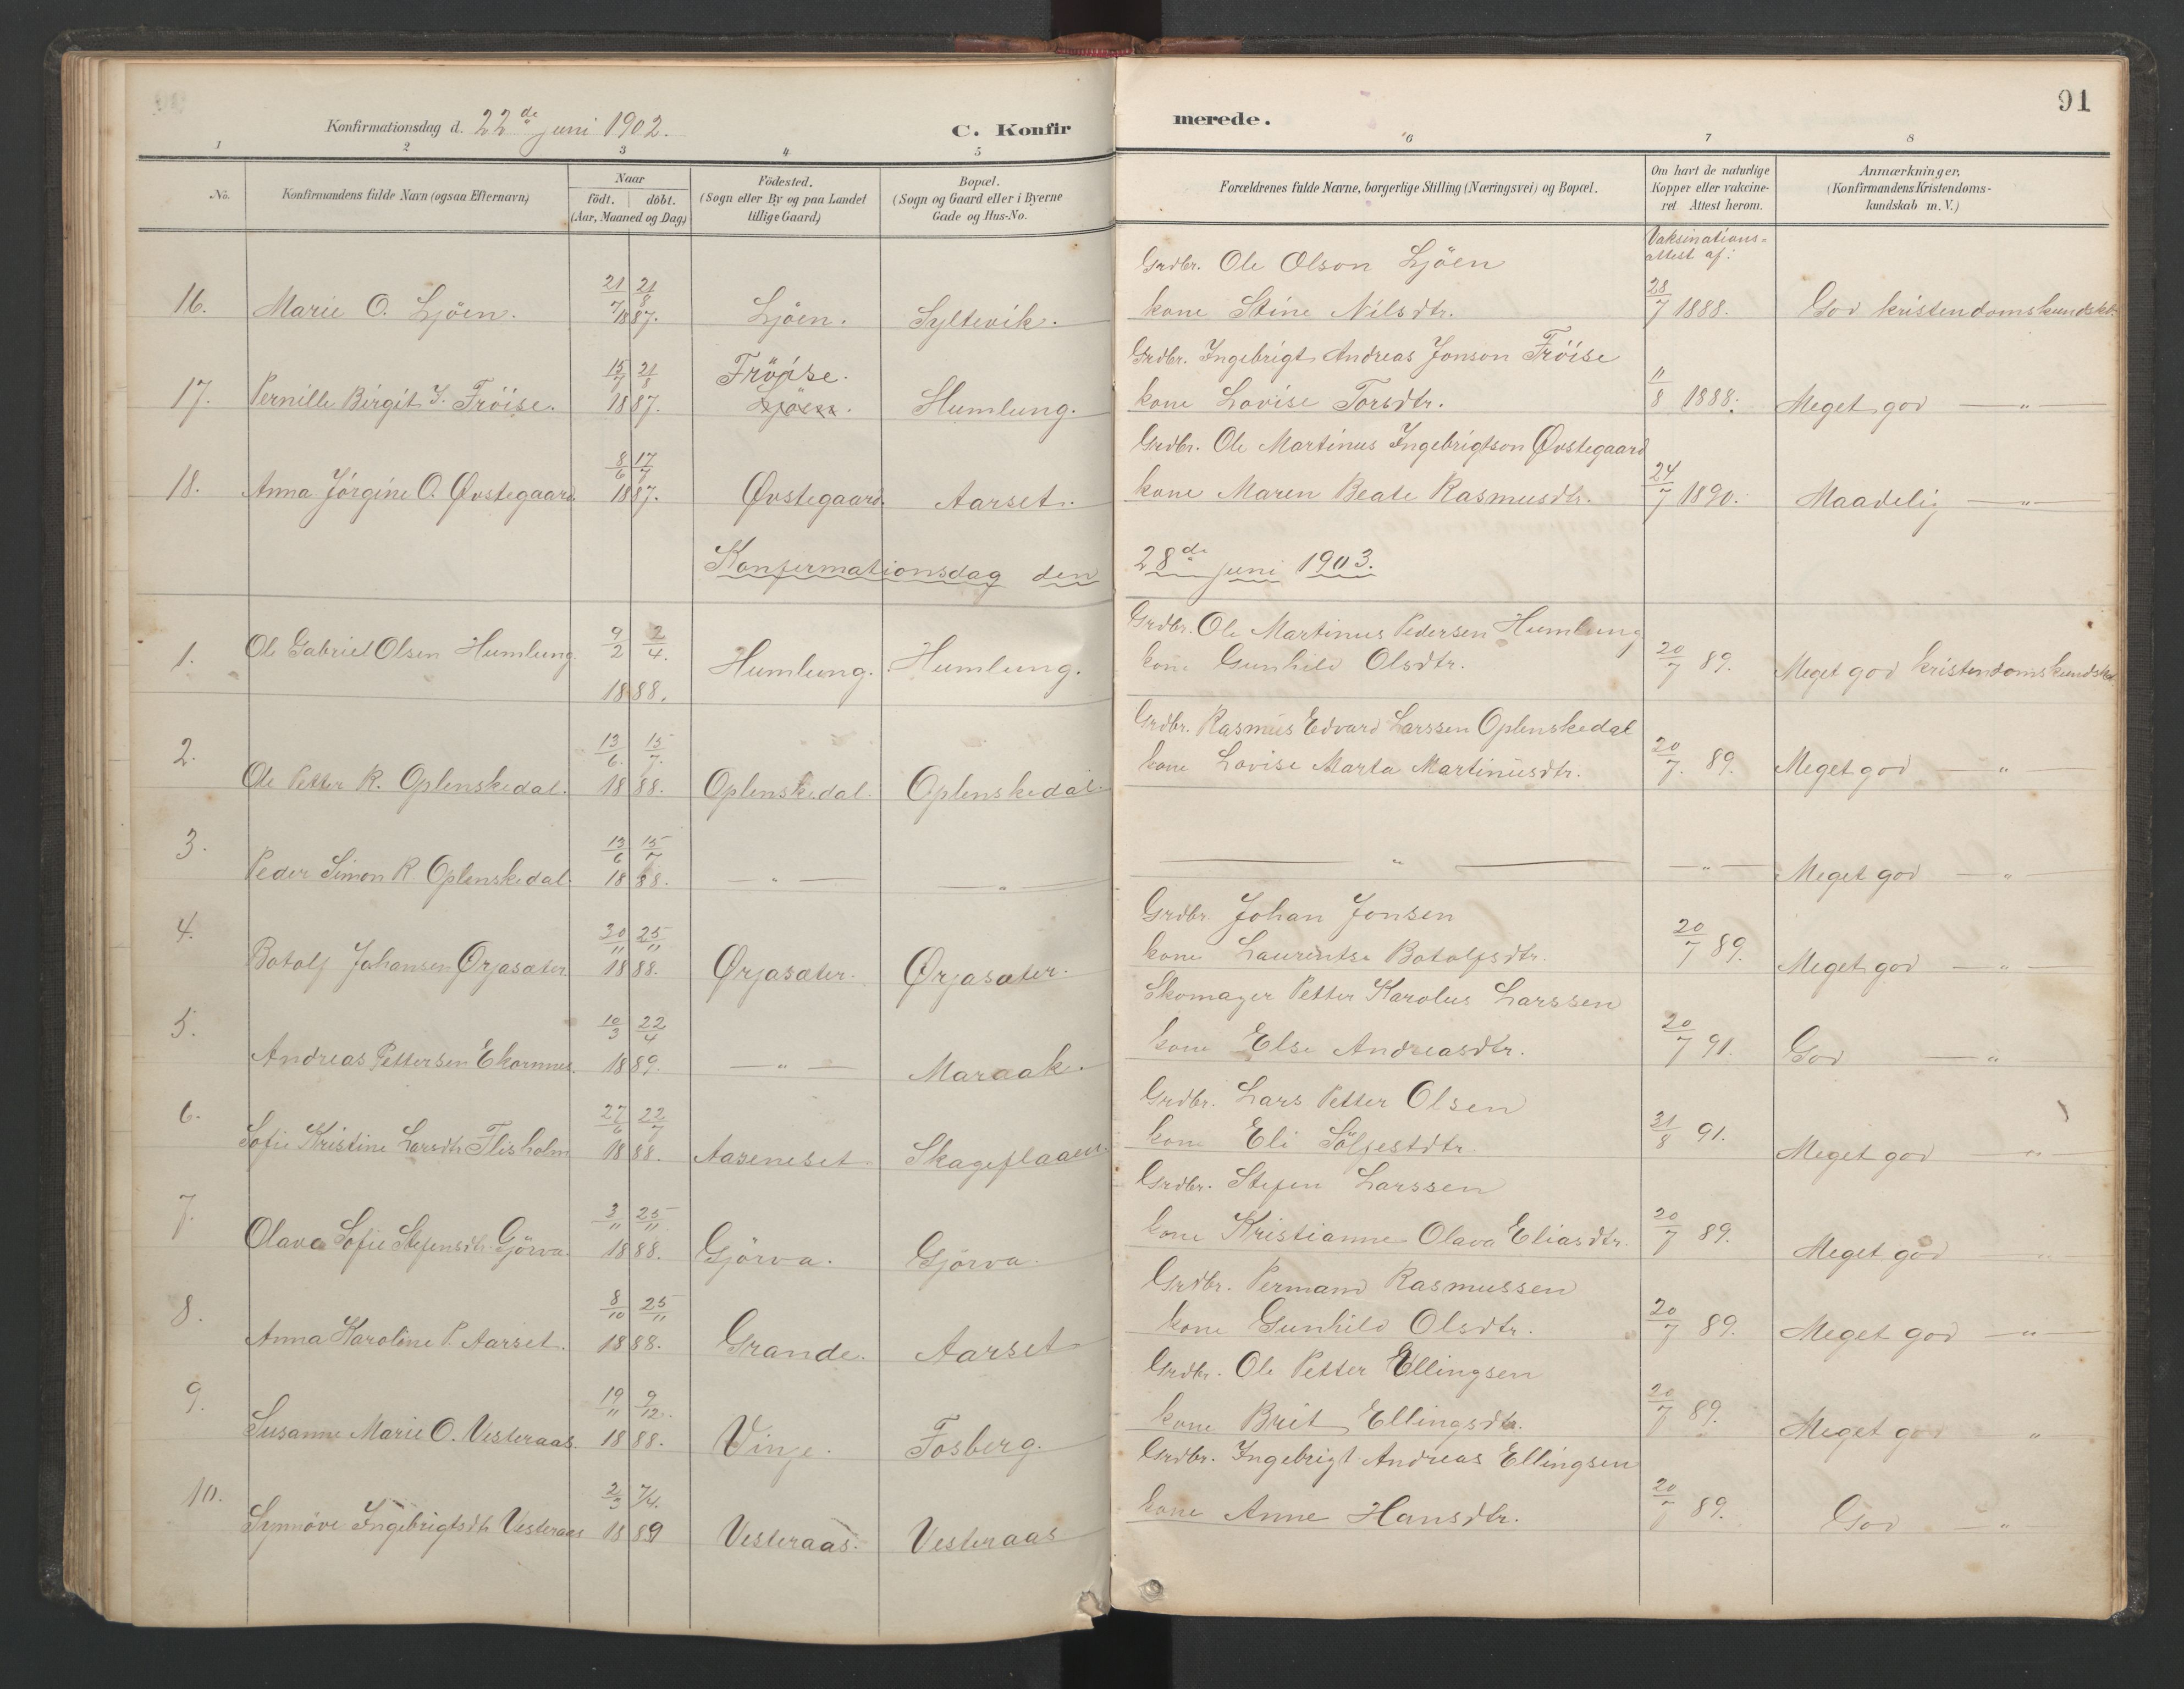 Konfirmationsdag d. 22de juni 1902. C. Konfir merede. 91
1 2 3 4 5 6 7 8
No. Konfirmandens fulde Navn (ogsaa Efternavn) Naar födt. döbt. (Aar, Maaned og Dag) Födested. (Sogn eller By og paa Landet tillige Gaard) Bopæl. (Sogn og Gaard eller i Byerne Gade og Hus-No. Forældrenes fulde Navne, borgerlige Stilling (Næringsvei) og Bopæl. Om havt de naturlige Kopper eller vakcineret Attest herom. Anmærkninger, (Konfirmandens Kristendomskundskab m. V.)
Vaksinations=
attest af:
Grdbr. Ole Olson Ljöen
16. Marie O. Ljöen. 21/7 21/8 1887. Ljöen. Syltevik. kone Stine Nilsdtr. 28/7 1888. God kristendomskundskb.
Grdbr. Ingebrigt Andreas Jonson Fröise
Fröise.
17. Pernille Birgit I. Fröise. 15/7 21/8 1887. Ljöen. Humlung. kone Lovise Torsdtr. 11/8 1888. Meget god — " —
Grdbr. Ole Martinus Ingebrigtson Øvstegaard
18. Anna Jörgine O. Øvstegaard. 8/6 17/7 1887. Øvstegaard. Aarset. kone Maren Beate Rasmusdtr. 24/7 1890. Maadelig — " —
Konfirmationsdag den 28de juni 1903.
Grdbr. Ole Martinus Pedersen Humlung
1. Ole Gabriel Olsen Humlung. 9/2 2/4. 1888. Humlung. Humlung. kone Gunhild Olsdtr. 20/7 89. Meget god kristendomskundskb.
Grdbr. Rasmus Edvard Larssen Oplenskedal
2. Ole Petter R. Oplenskedal. 13/6. 15/7. 1888. Oplenskedal. Oplenskedal. kone Lovise Marta Martinusdtr. 20/7. 89. Meget god — " —
3. Peder Simon R Oplenskedal. 13/6 15/7 1888. — " — — " — — " — — " — Meget god — " —
Grdbr. Johan Jonsen
4. Botolf Johansen Ørjasæter. 30/11 25/11 1888. Ørjasæter. Ørjasæter. kone Laurentse Botolfsdtr. 20/7 89. Meget god — " —
Skomager Petter Karolus Larssen
5. Andreas Pettersen Ekornnes. 10/3 22/4 1889. — " — Maraak. kone Else Andreasdtr. 20/7 91. God — "
Grdbr. Lars Petter Olsen
6. Sofie Kristine Larsdtr Flisholm 27/6 22/7 1888. Aaseneset. Skageflaaen. kone Eli Sölfestdtr. 31/8 91. Meget god — " —
Grdbr. Stefen Larssen
7. Olava Sofie Stefensdtr. Gjörva. 3/11 25/11 1888. Gjörva. Gjörva. kone Kristianne Olava Eliasdtr. 20/7 89. Meget god — " —
Grdbr. Permand Rasmussen
8. Anna Karoline P. Aarset. 8/10 25/11 1888. Grande. Aarset kone Gunhild Olsdtr. 20/7 89. Meget god — " —
Grdbr. Ole Petter Ellingsen
9. Susanne Marie O. Vesteraas. 19/11 9/12. 1888. Vinje. Fosberg. kone Brit Ellingsdtr. 20/7 89. Meget god "
Grdbr. Ingebrigt Andreas Ellingsen
10. Synnöve Ingebrigtsdtr Vesteraas 2/3 7/4. 1889 Vesteraas. Vesteraas kone Anne Hansdtr. 20/7 89. God — "